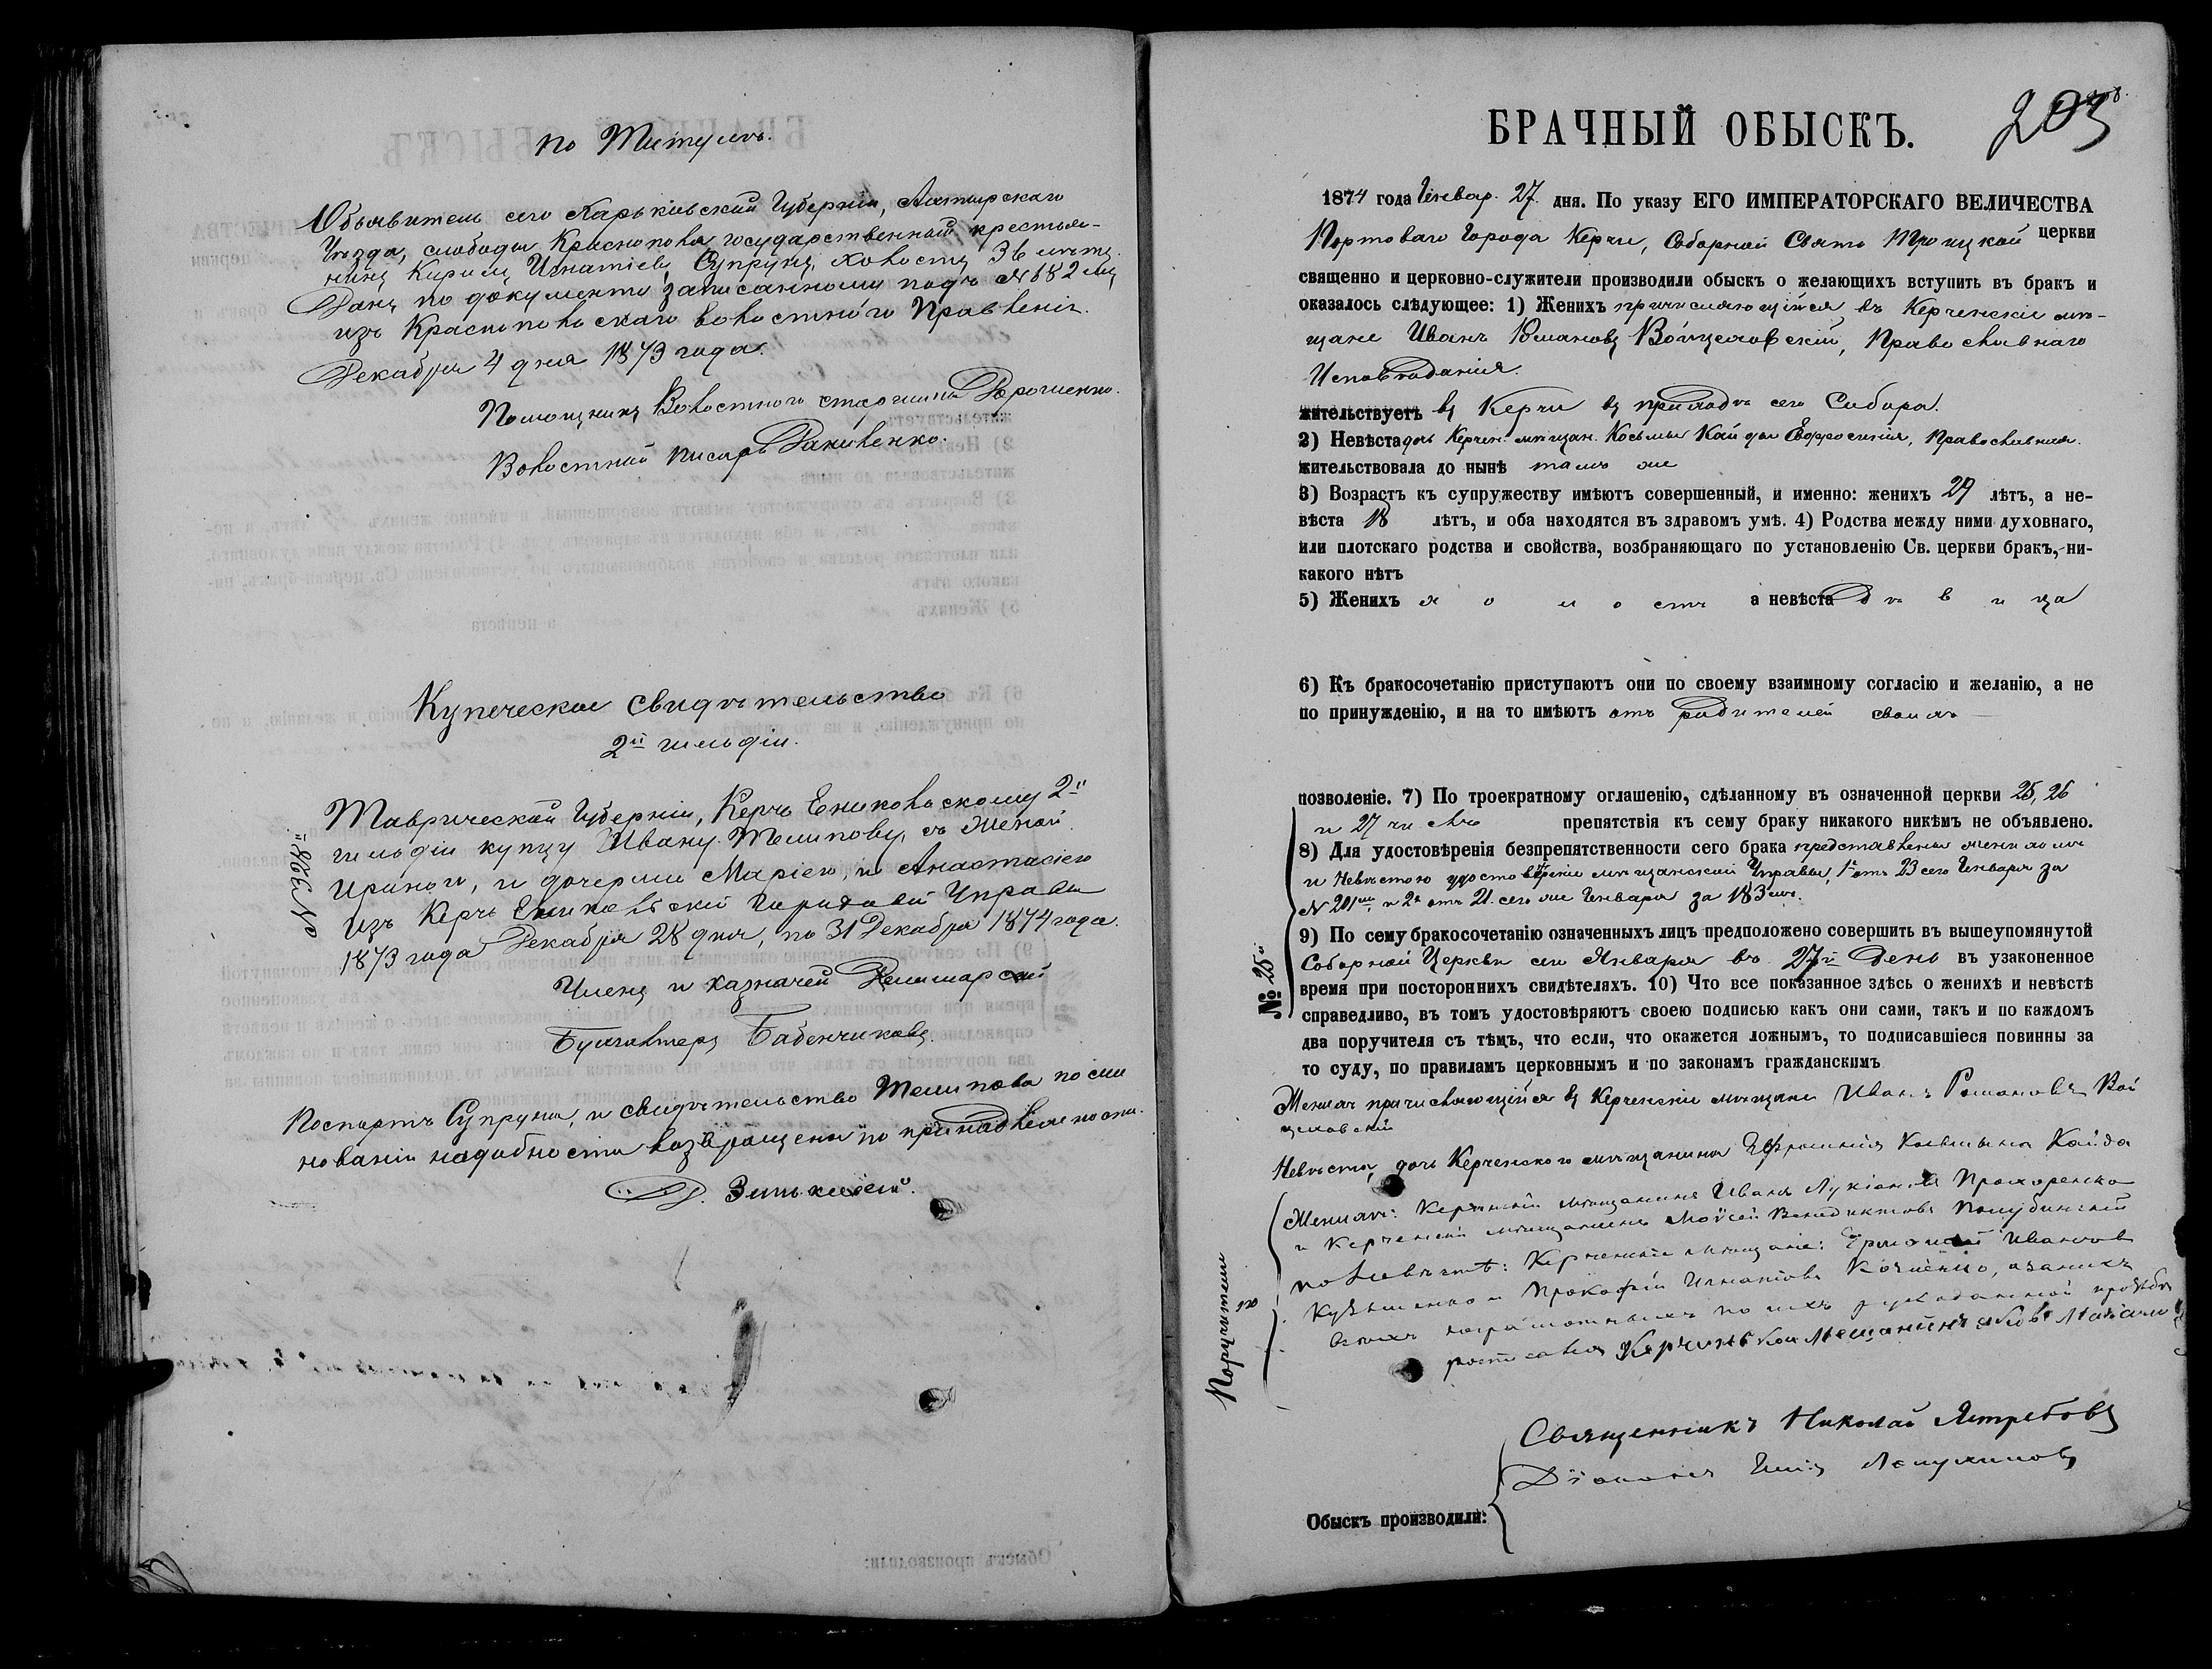 по Титулъ.
Объявитель сего Харьковской Губерніи, Ахтырскаго
Уѣзда, слободы Краснополья, государственный крестья-
нинъ Кирилъ Игнатіевъ Супрунъ, холостъ 36 лѣтъ.
Данъ по документу записанному подъ № 682 мъ
изъ Краснопольскаго волостного Правленія.
Декабря 4 дня 1873 года.
Помощникъ Волостного старшины Ярошенко.
Волостной писарь Яковенко.
Купеческое свидѣтельство
2й гильдіи.
№ 398й
Таврической Губерніи, Керчь Ениковскому 2й
гильдіи купцу Ивану Телипову, съ женой
Ириною, и дочерми Маріею, и Анастасіею
изъ Керчь Еникольской Городовой Управы
1873 года Декабря 28 дня, по 31 Декабря 1874 года.
Членъ и казначей
Бухгалтеръ Бабенчиковъ.
Паспортъ Супруна, и свидѣтельство Телипова по ми
нованіи надобности возвращены по принадлежности.
Д. Зинькевичъ.
203
БРАЧНЫЙ ОБЫСКЪ.
1874 года Генвар. 27. дня. По указу ЕГО ИМПЕРАТОРСКАГО ВЕЛИЧЕСТВА
Портоваго города Керчи, Соборной Свято Троицкой церкви
священно и церковно-служители производили обыск о желающихъ вступить въ бракъ и
оказалось слѣдующее: 1) Женихъ причисляющійся въ Керченскіе мѣ-
щане Иванъ Романовъ Войцеловскій, Православнаго
Исповѣданія.
жительствуетъ въ Керчи въ приходѣ сего Собора.
2) Невѣста дочь Керчен. мѣщан. Косьмы Кайды Евфросинія, Православная.
жительствовала до нынѣ тамъ же
3) Возрастъ къ супружеству имѣютъ совершенный, и именно: женихъ 29 лѣтъ, а не-
вѣста 18 лѣтъ, и оба находятся въ здравомъ умѣ. 4) Родства между ними духовнаго,
или плотскаго родства и свойства, возбраняющаго по установленію Св. церкви бракъ, ни-
какого нѣтъ
5) Женихъ холостъ а невѣста Дѣвица
6) Къ бракосочетанію приступаютъ они по своему взаимному согласію и желанію, а не
по принужденію, и на то имѣютъ отъ родителей своихъ
позволеніе. 7) По троекратному оглашенію, сдѣланному въ означенной церкви 25, 26
и 27 числъ препятствія къ сему браку никакого никѣмъ не объявлено.
8) Для удостовѣренія безпрепятственности сего брака представлены женихомъ
и Невѣстою удостовѣренія мѣщанской Управы, 1е отъ 23 сего Генваря за
№ 201мъ, и 2е отъ 21. сего же Генваря за 183мъ.
№ 25й
9) По сему бракосочетанію означенныхъ лицъ предположено совершить въ вышеупомянутой
Соборной Церкви сего Января въ 27й День въ узаконенное
время при постороннихъ свидѣтеляхъ. 10) Что все показанное здѣсь о женихѣ и невѣстѣ
справедливо, въ томъ удостовѣряютъ своею подписью какъ они сами, такъ и по каждомъ
два поручителя съ тѣмъ, что если, что окажется ложнымъ, то подписавшіеся повинны за
то суду, по правиламъ церковнымъ и по законамъ гражданскимъ
Женихъ причисляющійся въ Керченскіе мѣщане Иванъ Романовъ Вой
целовскій
Невѣста, дочь Керченскаго мѣщанина Ефросинія Косьмына Кайда
Поручители по
Женихѣ: Керченскій мѣщанинъ Иванъ Лукіановъ Прохоренко
и Керченскій мѣщанинъ Моѵсей Венедиктовъ Полубинскій
по невѣстѣ: Керченскіе мѣщане: Ермолай Ивановъ
Кузьменко и Прокофій Игнатіовъ, а за нихъ
всехъ неграмотныхъ по ихъ рукоданной прозьбѣ
росписался Керченскои Мещанинъ
Священникъ Николай Ястребовъ
Діаконъ
Обыскъ производили: